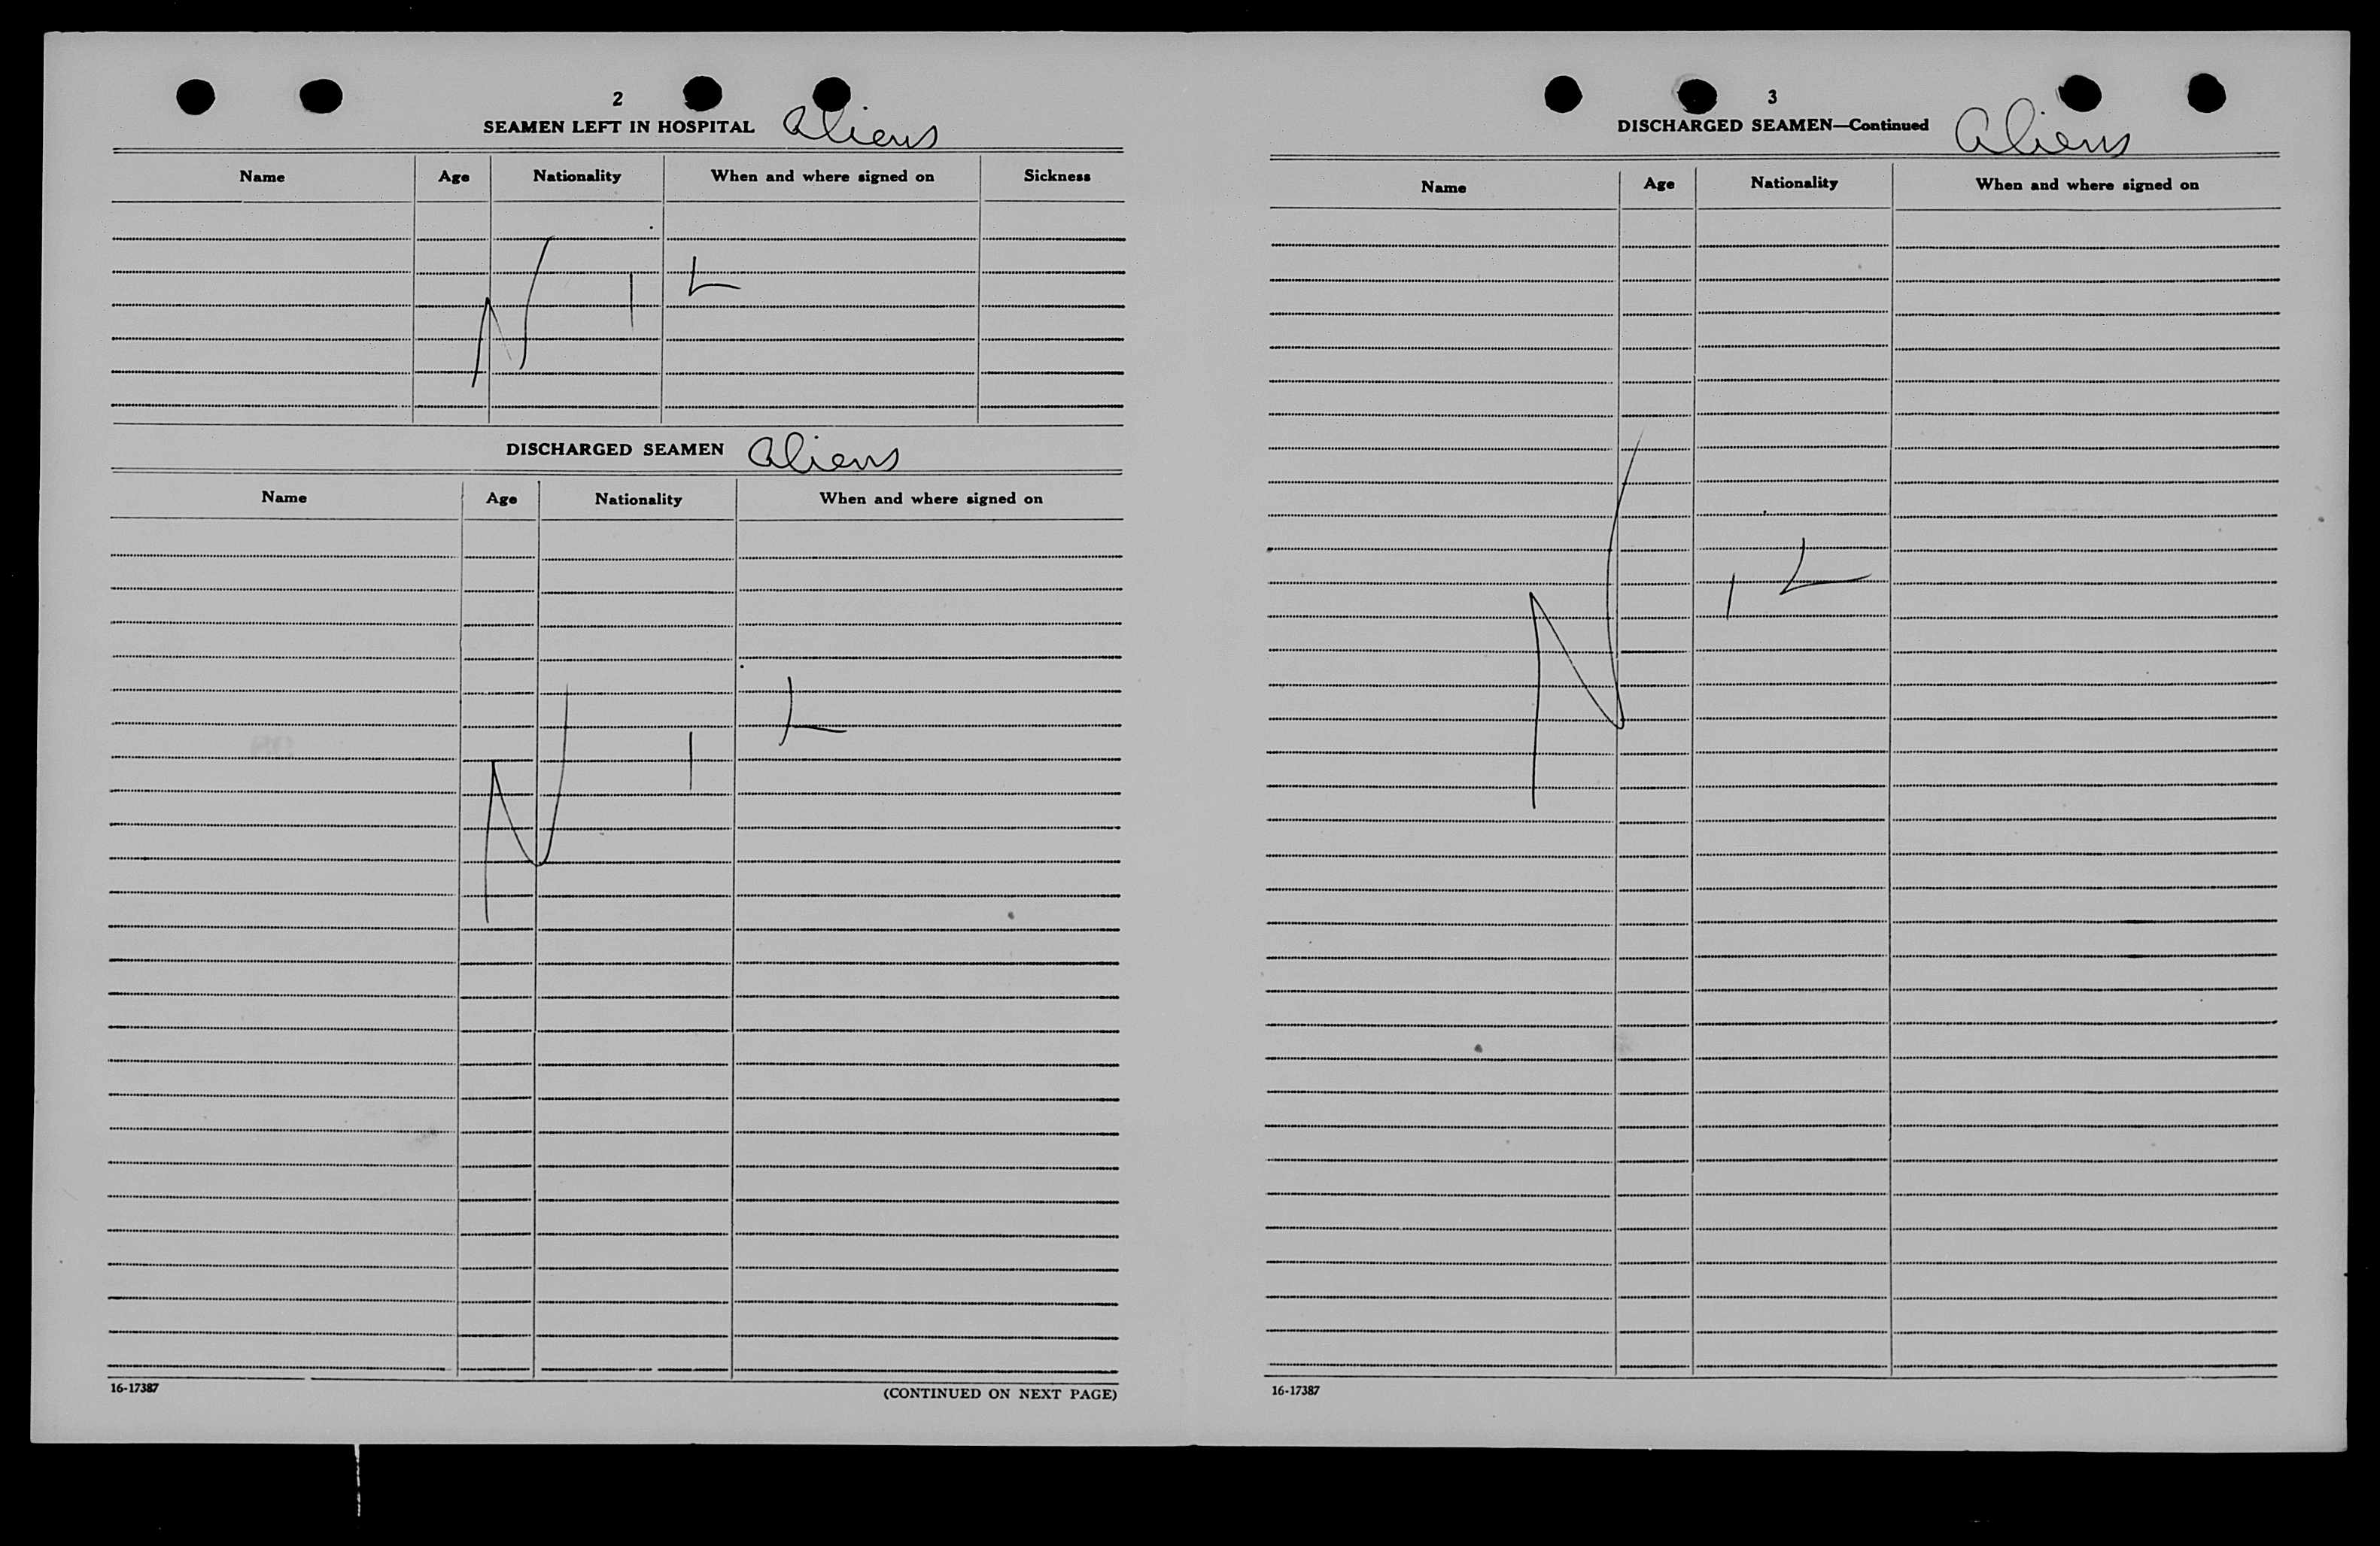 2
SEAMEN LEFT IN HOSPITAL Aliens
Name Age Nationality When and where signed on Sickness
NIL
DISCHARGED SEAMEN Aliens
Name Age Nationality When and where signed on
NIL
16-17387 (CONTINUED ON NEXT PAGE)
3
DISCHARGED SEAMEN—Continued Aliens
Name Age Nationality When and where signed on
NIL
16-17387